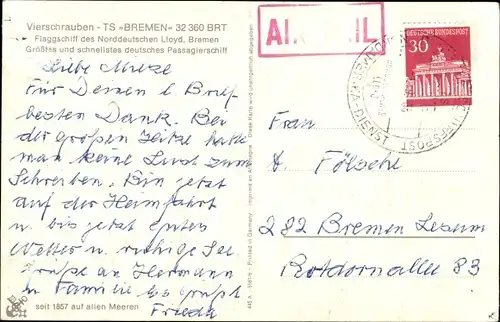 Vierschrauben - TS »BREMEN« 32 360 BRT
Flaggschiff des Norddeutschen Lloyd, Bremen
Größtes und schnellstes deutsches Passagierschiff
Liebe Mieze
Für Deinen l. Brief
besten Dank. Bei
der großen Hitze hatte
man keine Lust zum
Schreiben. Bin jetzt
auf der Heimfahrt
u. bis jetzt gutes
Wetter u. ruhige See
Grüße an Hermann
u. Familie Es grüßt
Frieda
seit 1857 auf allen Meeren
Printed in Germany
AI. IL
DEUTSCHE BUNDESPOST
30
DIENST
Frau
H. Fölsche
282 Bremen Lesum
Rotdornallee 83